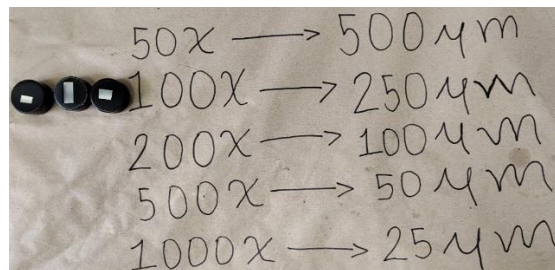 50x → 500 μm
100x → 250 μm
200x → 100 μm
500x → 50 μm
1000x → 25 μm